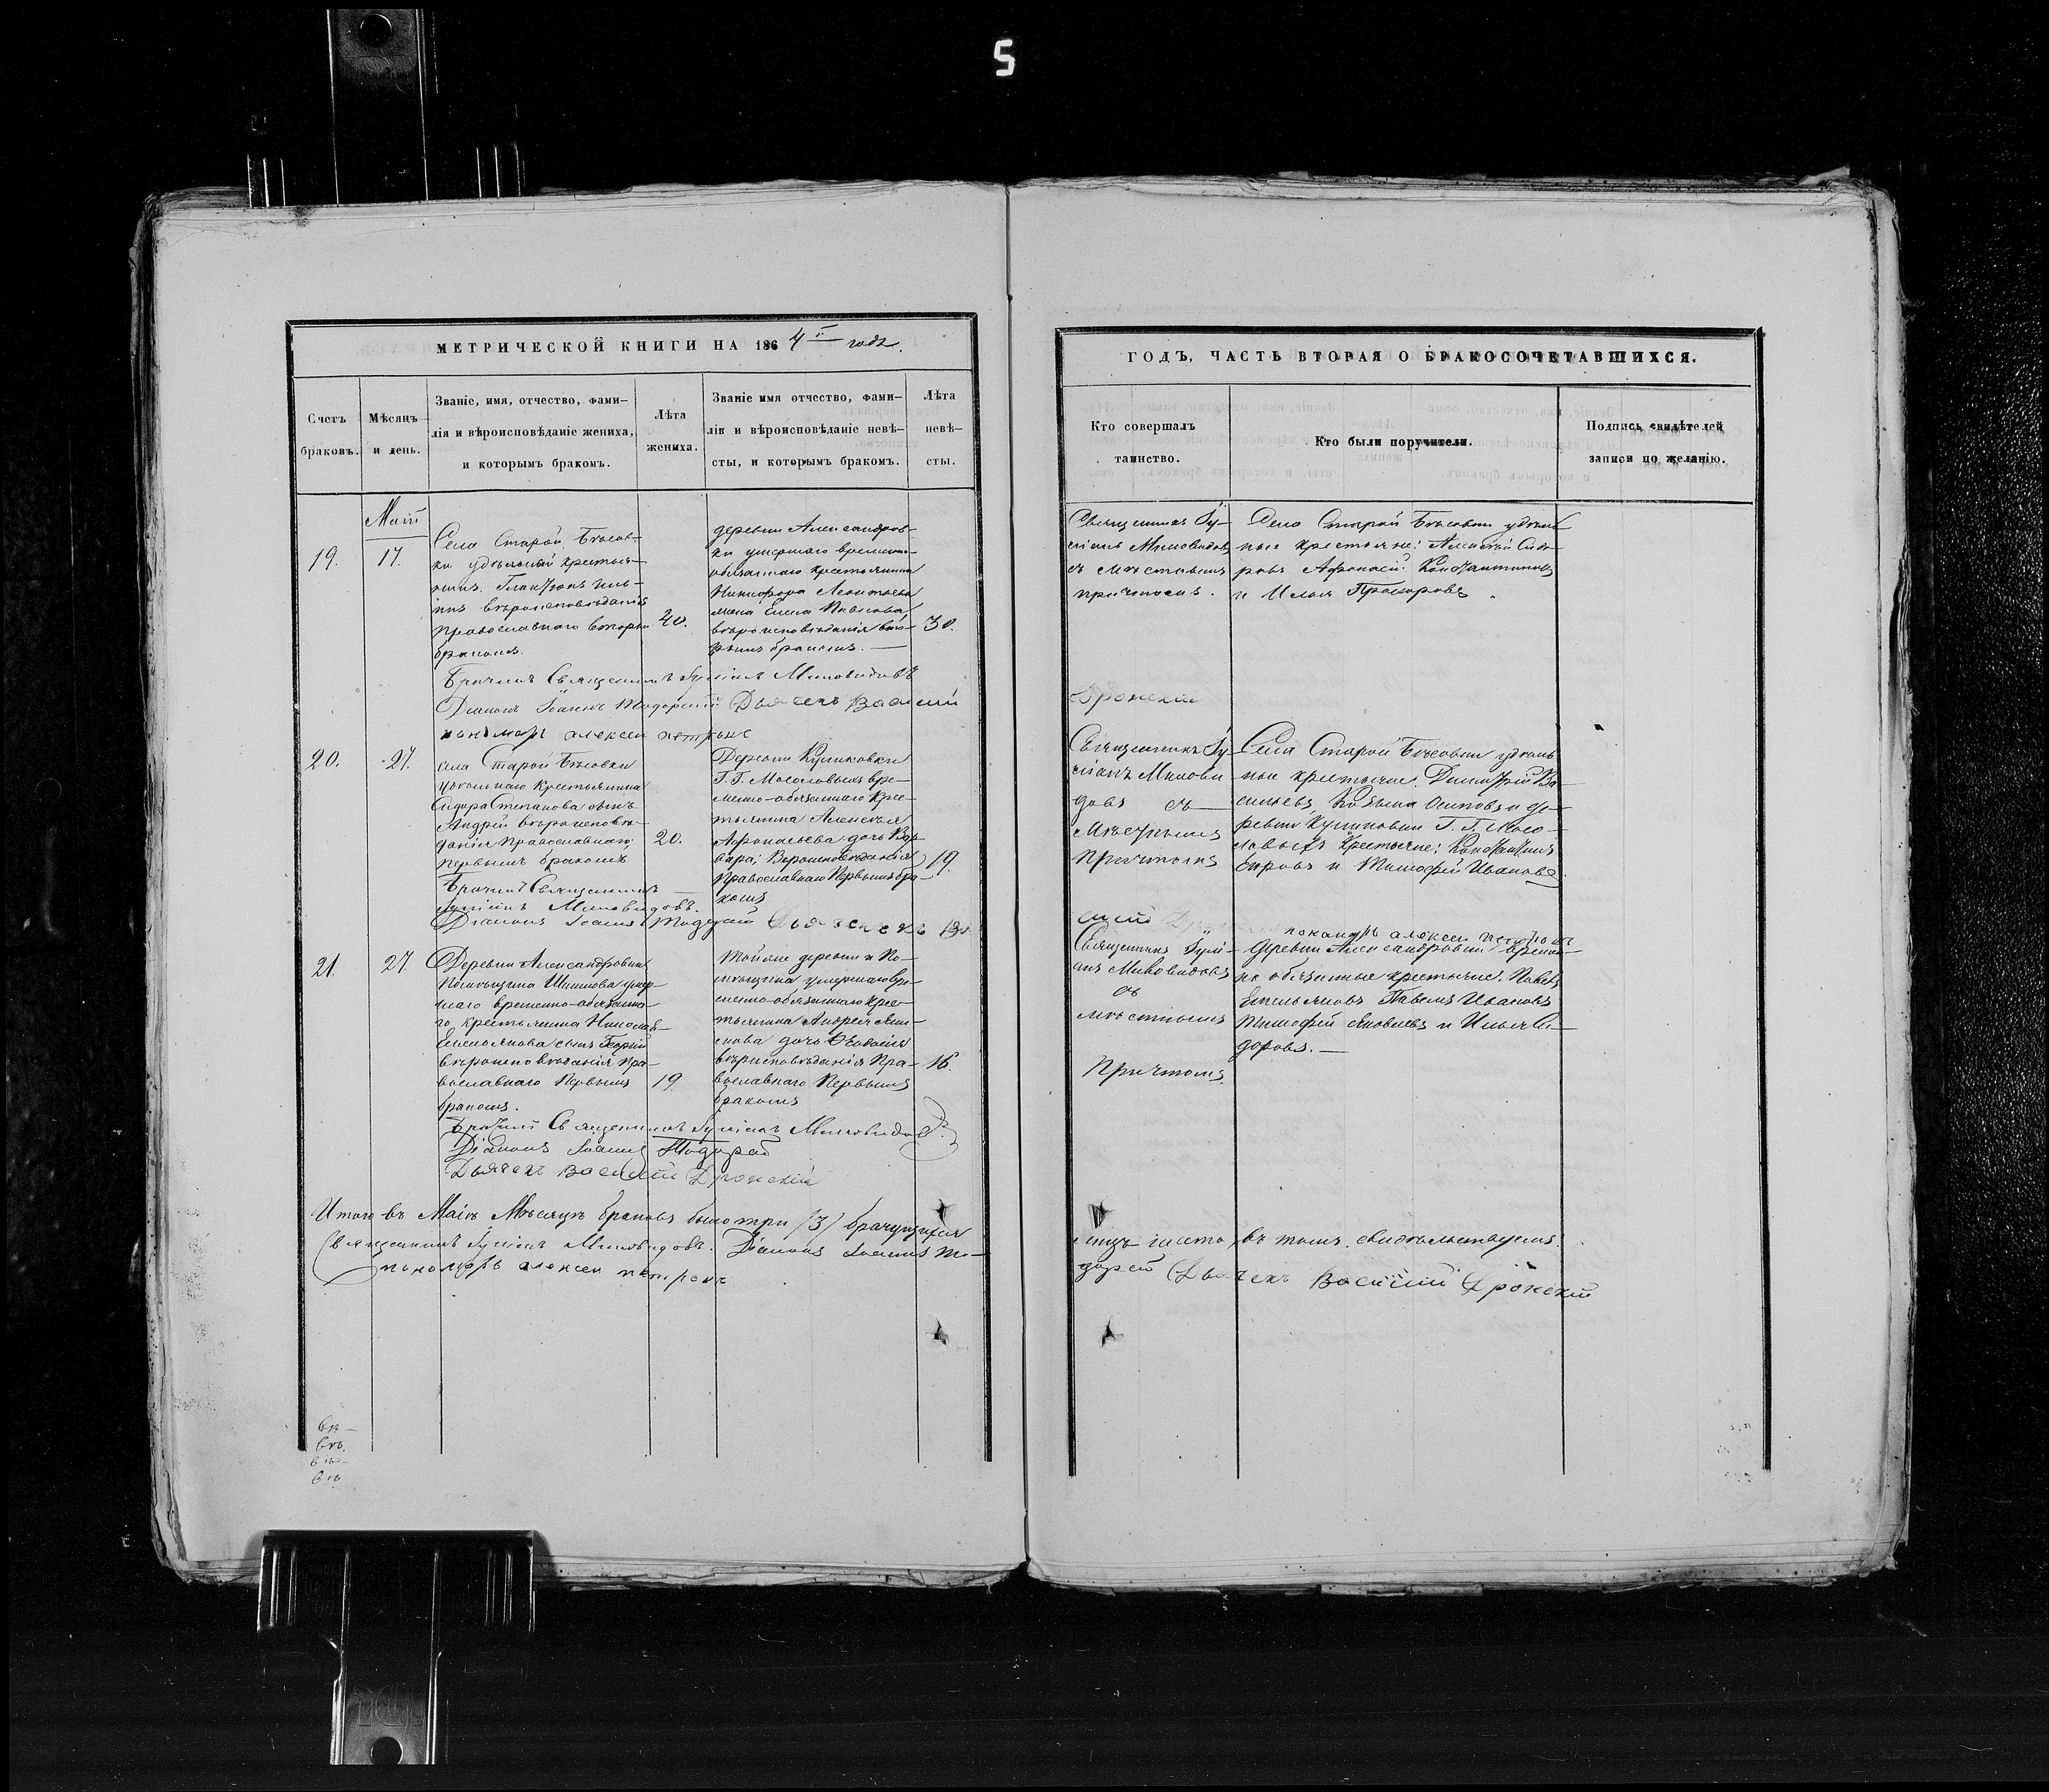 5
МЕТРИЧЕСКОЙ КНИГИ НА 1864й годъ.
Счетъ
браковъ.
Мѣсяцъ
и день.
Званіе, имя, отчество, фами-
лія и вѣроисповѣданіе жениха,
и которымъ бракомъ.
Лѣта
жениха.
Званіе имя отчество, фами-
лія и вѣроисповѣданіе невѣ-
сты, и которымъ бракомъ.
Лѣта
невѣ-
сты.
Маій
19.
17.
Села Старой Бѣсов-
ки удѣльный крестья-
нинъ
вѣроисповѣданія
православнаго вторы
бракомъ.
40.
деревни Александров-
ки умершаго временно-
обязаннаго крестьянина
Никифора Леонтьева
жена Елена Павлова
вѣроисповѣданія вто-
рымъ бракомъ.—
30.
Бракъ Священникъ Миловидовъ
Діаконъ Іоаннъ Дьячекъ Василій
пономарь алексеи петровъ
20.
21.
села Старой Бѣсовки
удѣльнаго крестьянина
Сидора Степанова сынъ
Андрей вѣроисповѣ-
данія православнаго,
первымъ бракомъ
20.
Деревни Куликовки
Г. Г. Мосоловыхъ вре-
менно-обязаннаго крес-
тьянина Алексѣя
Афонасьева дочь Вар-
вара; Вѣроисповѣданія
православнаго первымъ бра-
комъ
19.
Священникъ
Миловидовъ.
Діаконъ Іоаннъ
21.
27
Деревни Александровки
Помѣщика Шишкова умер-
шаго временно-обязанна-
го крестьянина Николая
Емельянова сынъ Георгій
вѣроисповѣданія пра-
вославнаго первымъ
бракомъ.
19.
Той же деревни и По-
мѣщика умершаго вре-
менно-обязаннаго крес-
тьянина Андрея
дочь
вѣроисповѣданія Пра-
вославнаго Первымъ
бракомъ
16.
Священникъ Миловидовъ
Діаконъ Іоаннъ
Дьячекъ Василій Дронскій
Итого въ Маіѣ Мѣсяцѣ браковъ было три /3/ брачущихся
Священникъ Миловидовъ. Діаконъ Іоаннъ
пономарь алексеи петровъ
ГОДЪ, ЧАСТЬ ВТОРАЯ О БРАКОСОЧЕТАВШИХСЯ.
Кто совершалъ
таинство.
Кто были поручители.
Подпись свидѣтелей
записи по желанію.
Священникъ Лу-
Миловидовъ
съ мѣстнымъ
причтомъ.
Села Старой Бѣсовки удѣль
ные крестьяне: Алексѣй Сидо-
ровъ Афонасій Константиновъ
и Илья Прохоровъ.
Дронскій
Священникъ Лу-
Милови
довъ съ
мѣстнымъ
причтомъ
Села Старой Бѣсовки удѣль
ные крестьяне: Димитрій Ва-
сильевъ, Козьма Осиповъ и де-
ревни Куликовки Г. Г. Мосо-
ловыхъ крестьяне: Константинъ
и Тимофей Ивановъ.
пономарь алексеи петровъ
Священникъ
Миловидовъ
съ
мѣстнымъ
Причтомъ.
деревни Александровки времен-
но обязанные крестьяне: Павелъ
Емельяновъ Павелъ Ивановъ
Тимофей Яковлевъ и Илья Си-
доровъ.—
лицъ шесто въ томъ свидѣтельствуемъ:
Дьячекъ Василий Дронскій